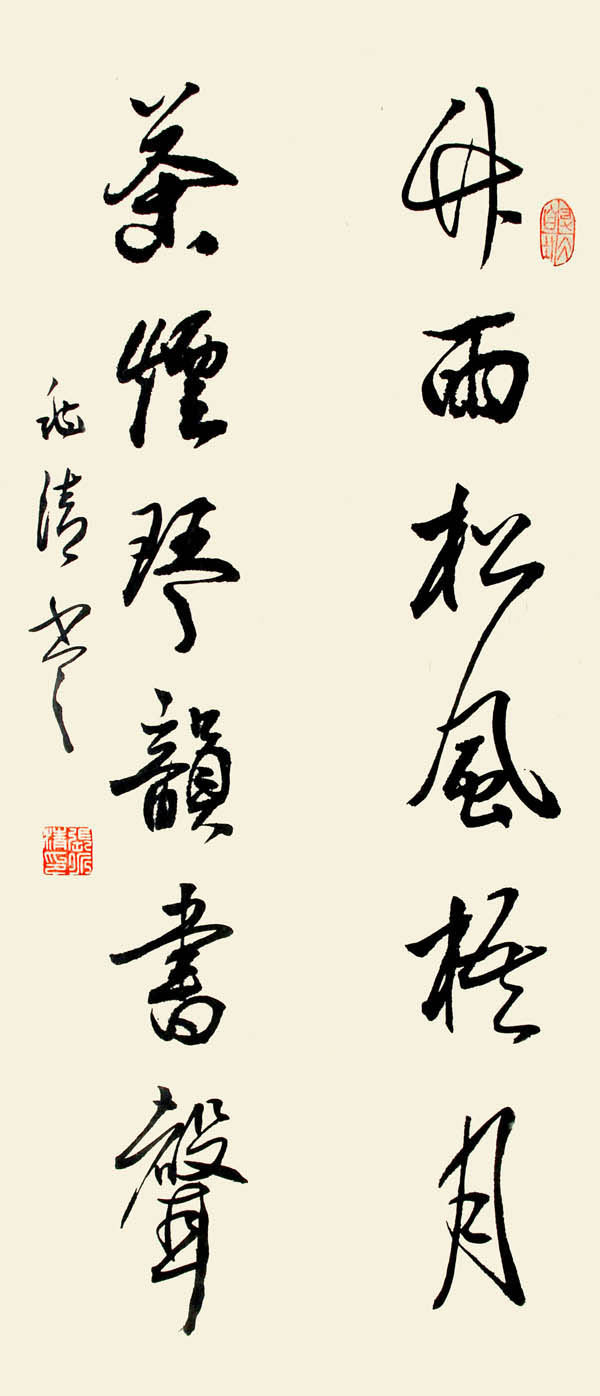 竹雨松風梧月
茶煙琴韻書聲
清書